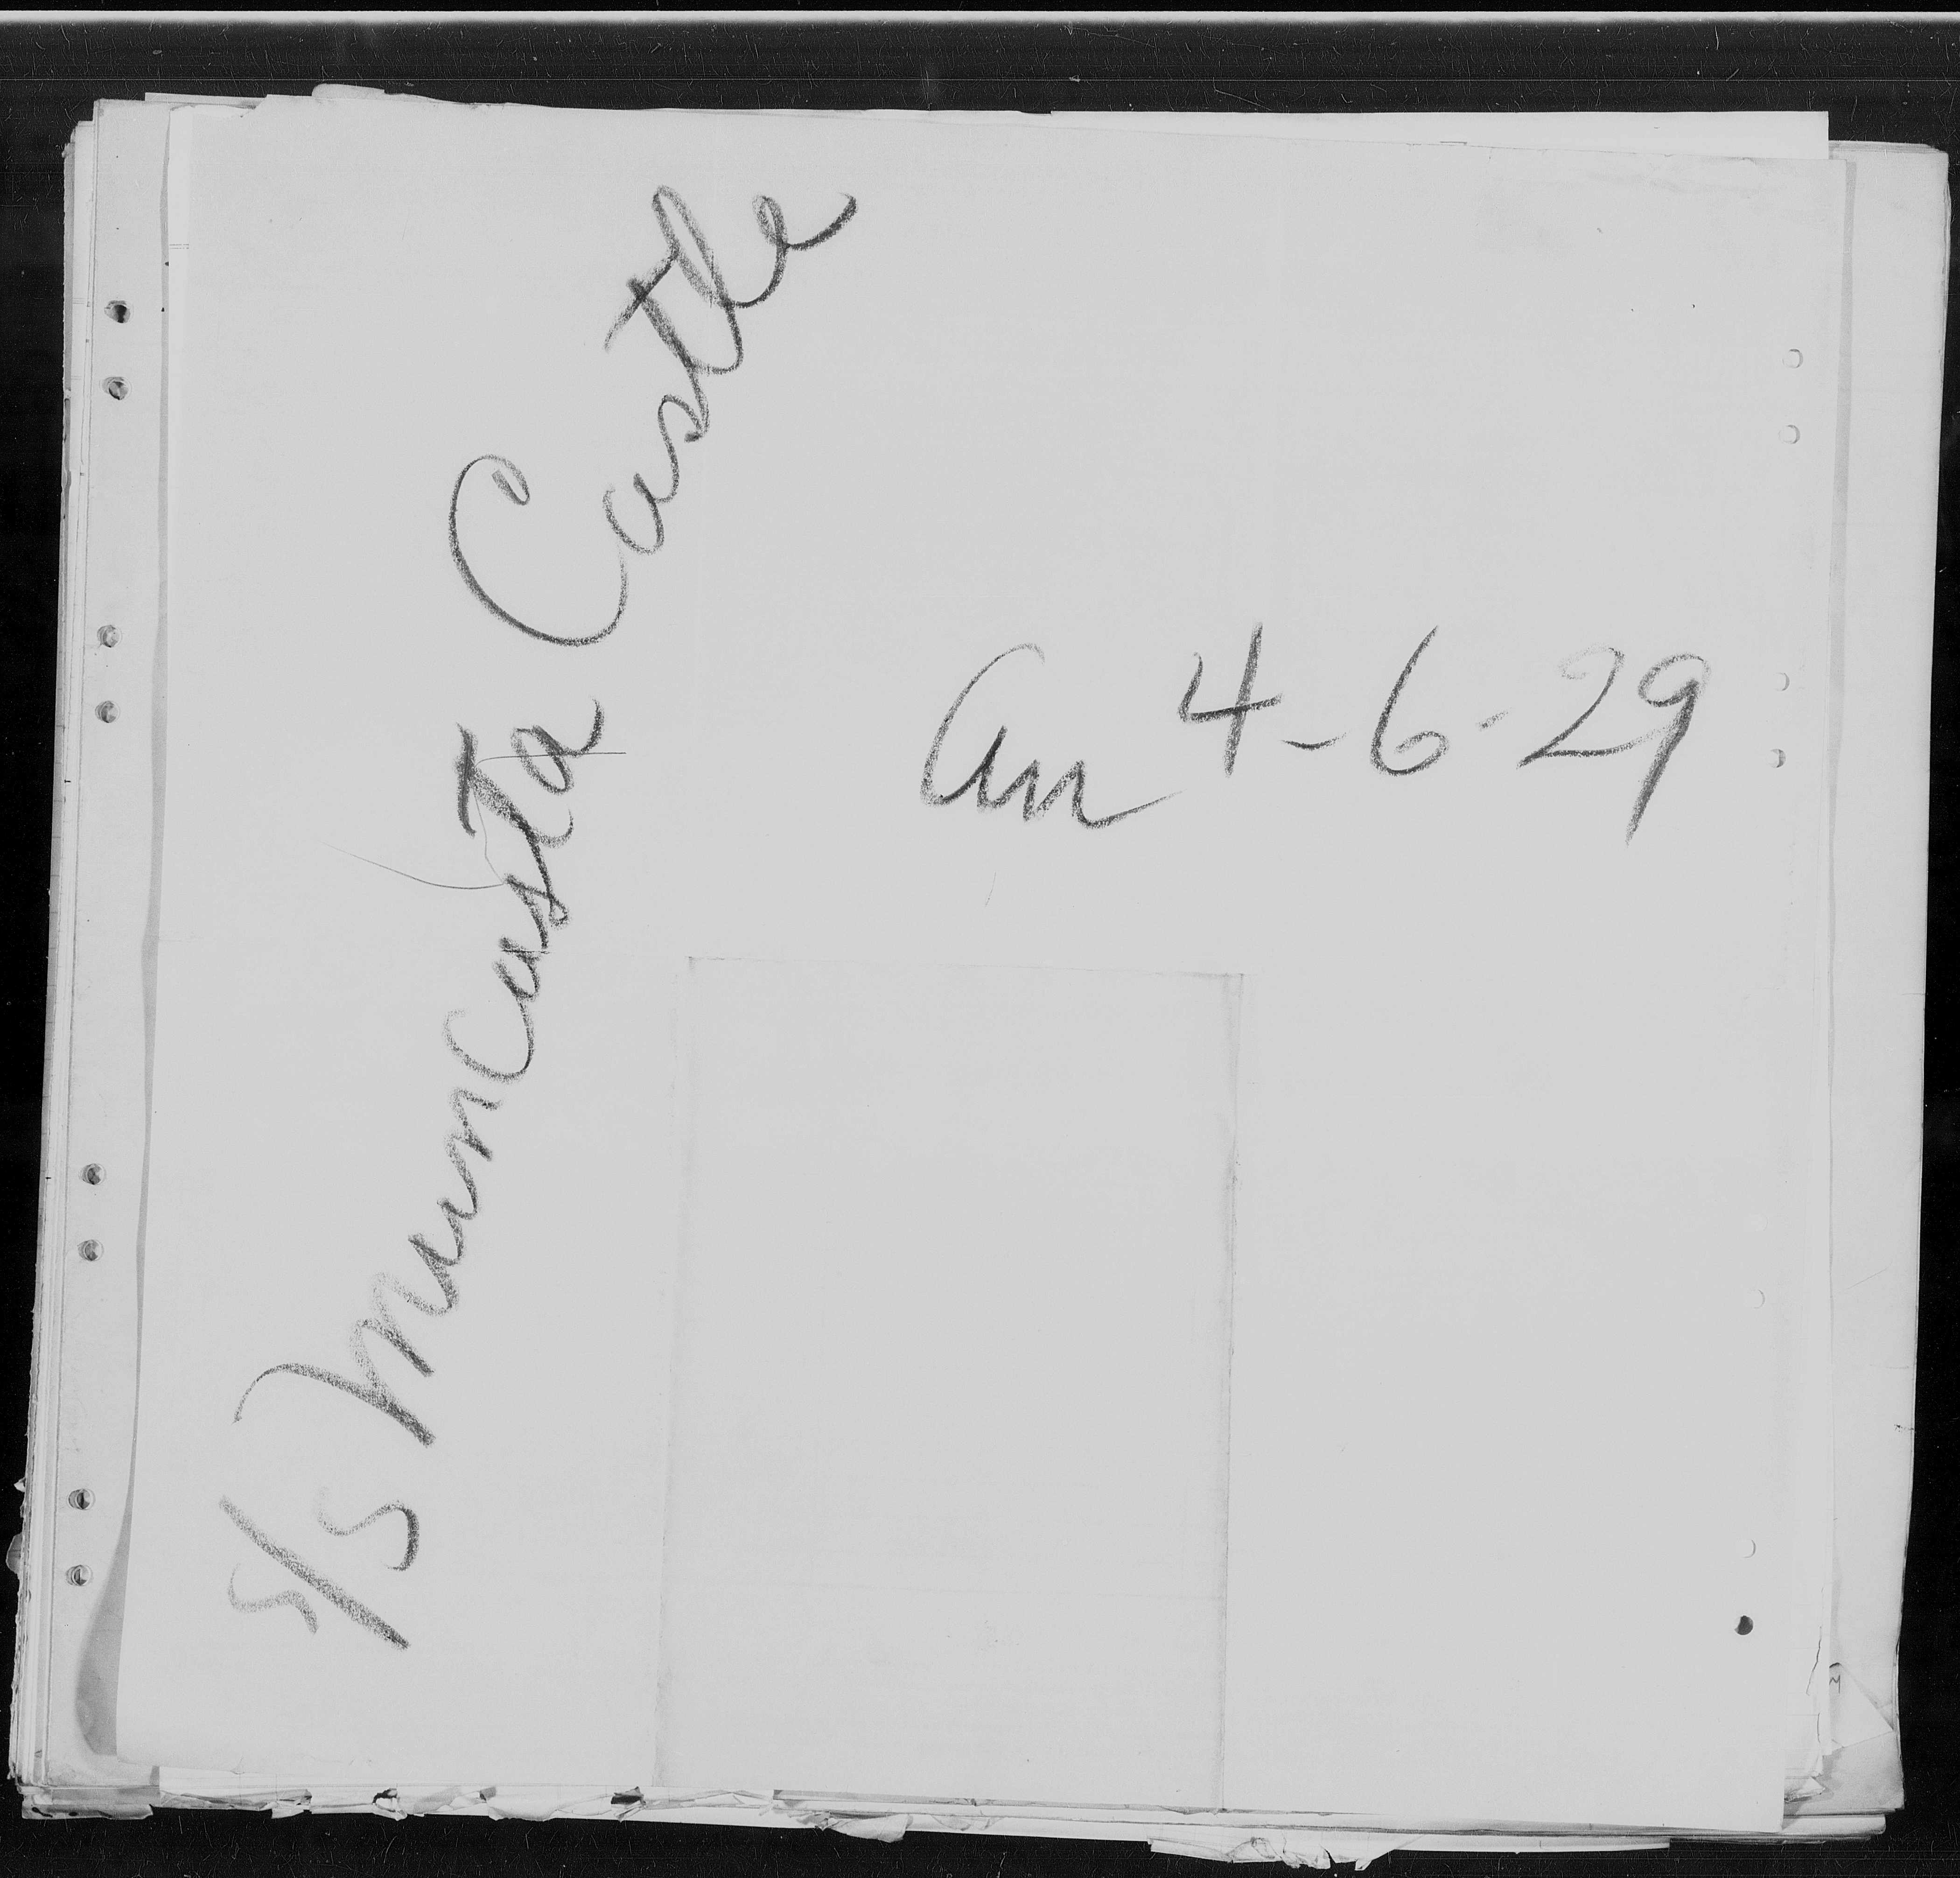 S/S Muncasta Castle
Arr 4-6-29